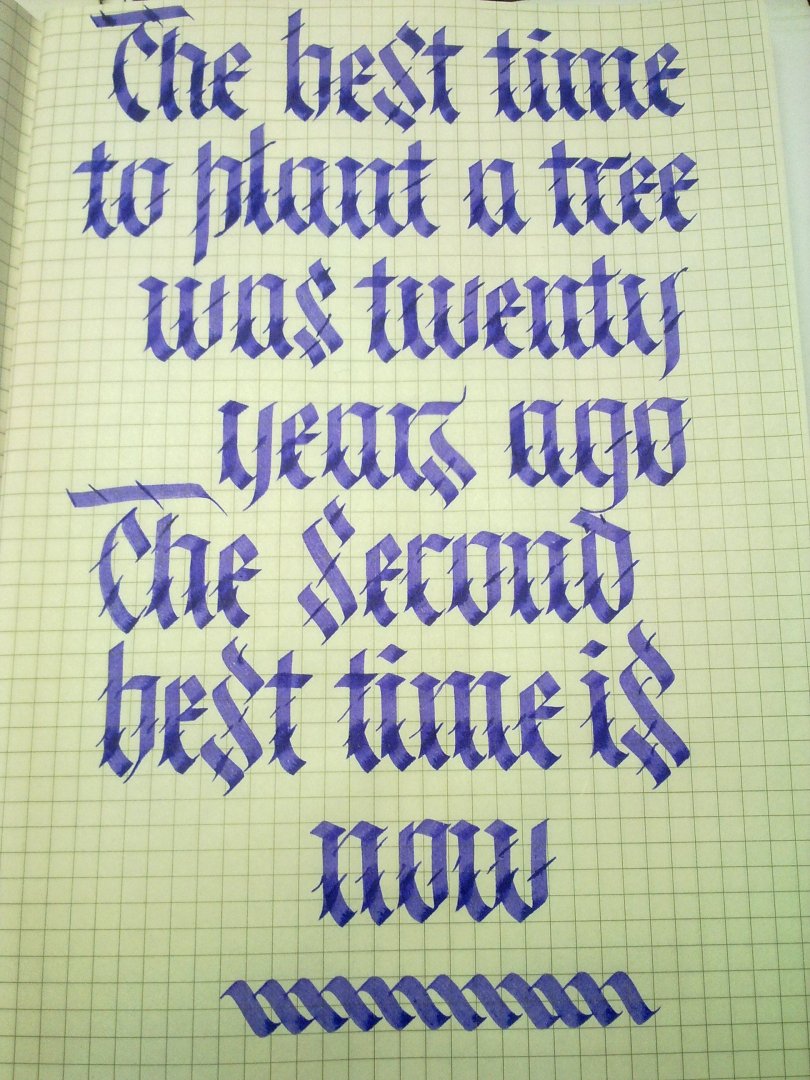 The best time
to plant a tree
was twenty
years ago
The Second
best time is
now